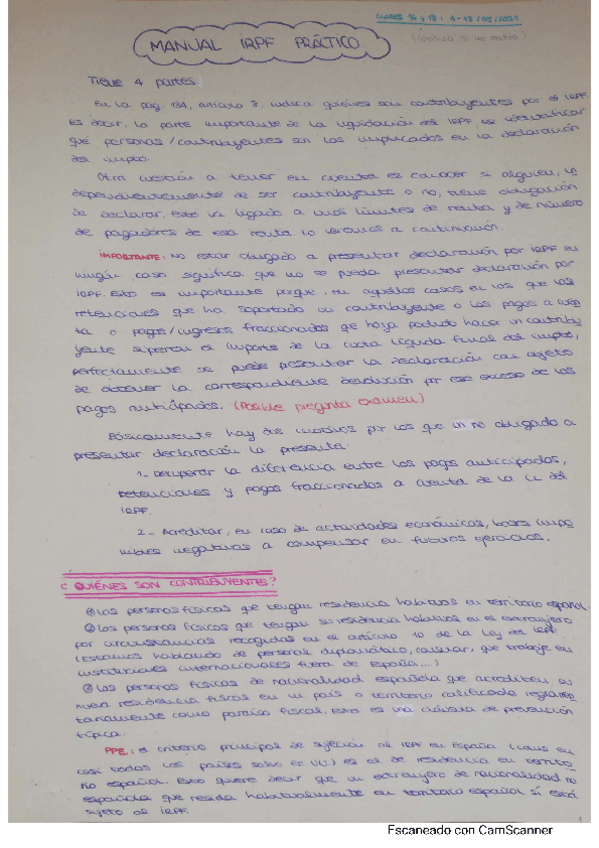 CLASES 16 y 18 : 4-18/05/2021
MANUAL IRPF PRÁCTICO
Tiene 4 partes:
En la pag. 134, artículo 8, indica quiénes son contribuyentes por el IRPF.
Es decir, la parte importante de la liquidación del IRPF es identificar
qué personas/contribuyentes son los implicados en la declaración
del impto.
Otra cuestión a tener en cuenta es conocer si alguien, in
dependientemente de ser contribuyente o no, tiene obligación
de declarar. Esto va ligado a unos límites de renta y de número
de pagadores de esa renta lo veremos a continuación.
IMPORTANTE: No estar obligado a presentar declaración por IRPF en
ningún caso significa que no se pueda presentar declaración por
IRPF. Esto es importante porque, en aquellos casos en los que las
retenciones que ha soportado un contribuyente o los pagos a cuen
ta o pagos/ingresos fraccionados que haya podido hacer un contribu
yente superen el importe de la cuota líquida final del impto,
perfectamente se puede presentar la declaración con objeto
de obtener la correspondiente devolución por ese exceso de los
pagos anticipados. (Posible pregunta examen)
Básicamente hay dos motivos por los que un no obligado a
presentar declaración la presenta
1- Recuperar la diferencia entre los pagos anticipados,
retenciones y pagos fraccionados a cuenta de la CL del
IRPF.
2- Acreditar, en caso de actividades económicas, bases impo
nibles negativas a compensar en futuros ejercicios.
¿QUIÉNES SON CONTRIBUYENTES?
① Las personas físicas que tengan residencia habitual en territorio español.
② Las personas físicas que tengan su residencia habitual en el extranjero
por circunstancias recogidas en el artículo 10 de la Ley del IRPF
(estamos hablando de personal diplomático, consular, que trabaje en
instituciones internacionales fuera de España,...)
③ Las personas físicas de nacionalidad española que acrediten su
nueva residencia fiscal en un país o territorio calificado reglamen
tariamente como paraíso fiscal. Esta es una cláusula de prevención
típica.
PPE: el criterio principal de sujeción al IRPF en España (como en
casi todos los países salvo EEUU) es el de residencia en territo
rio español. Esto quiere decir que un extranjero de nacionalidad no
española que resida habitualmente en territorio español sí está
sujeto al IRPF.
1
Escaneado con CamScanner